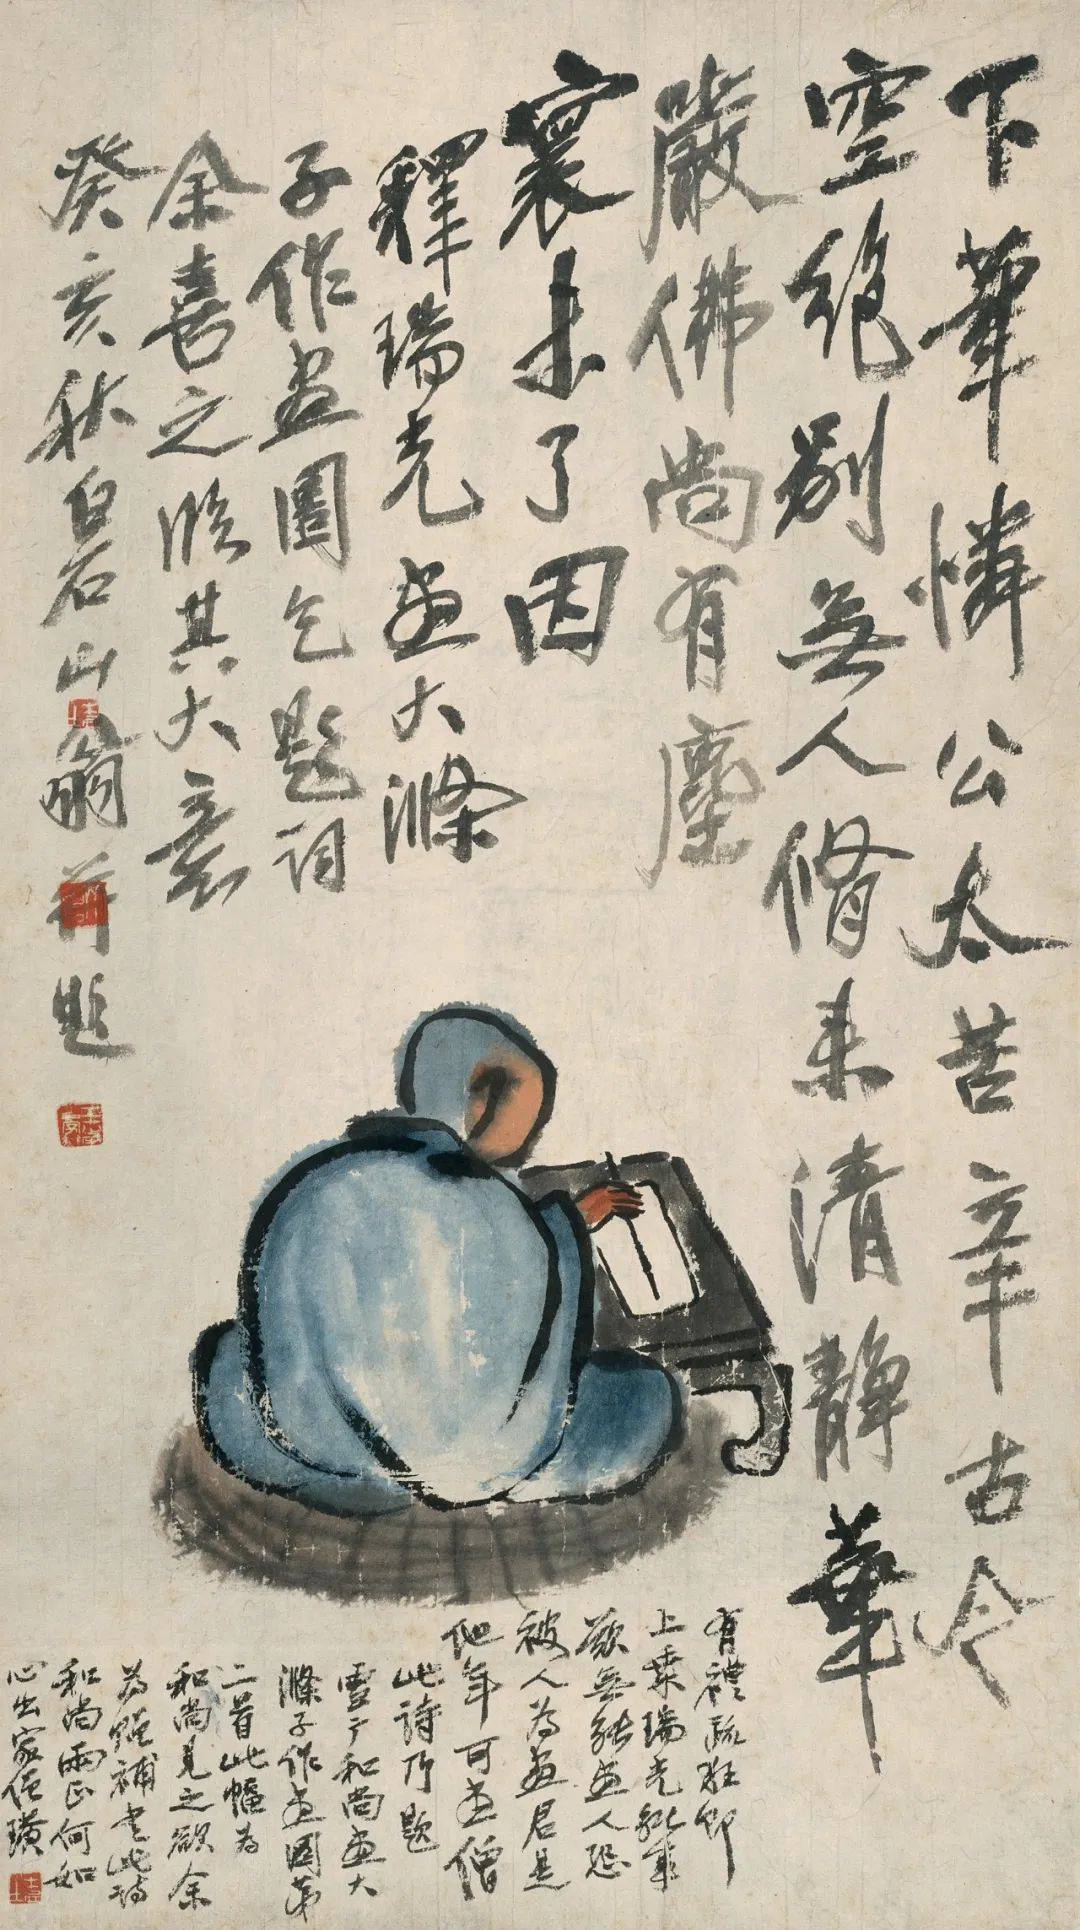 下筆憐公太苦辛古今
空絕別無人脩來清靜華
嚴佛尚有塵
寰未了因
釋瑞光畫大滌
子作畫圖乞題詞
余喜之臨其大意
癸亥秋白石山翁并題
有禮疏狂即
上乘瑞光
欲無能畫人恐
被人為畫君是
他年可畫僧
此詩乃題
雪厂和尚畫大
滌子作畫圖第
二首此幅為
和尚見之欲余
為贈補書此詩
和尚兩正何如
心出家僧璜